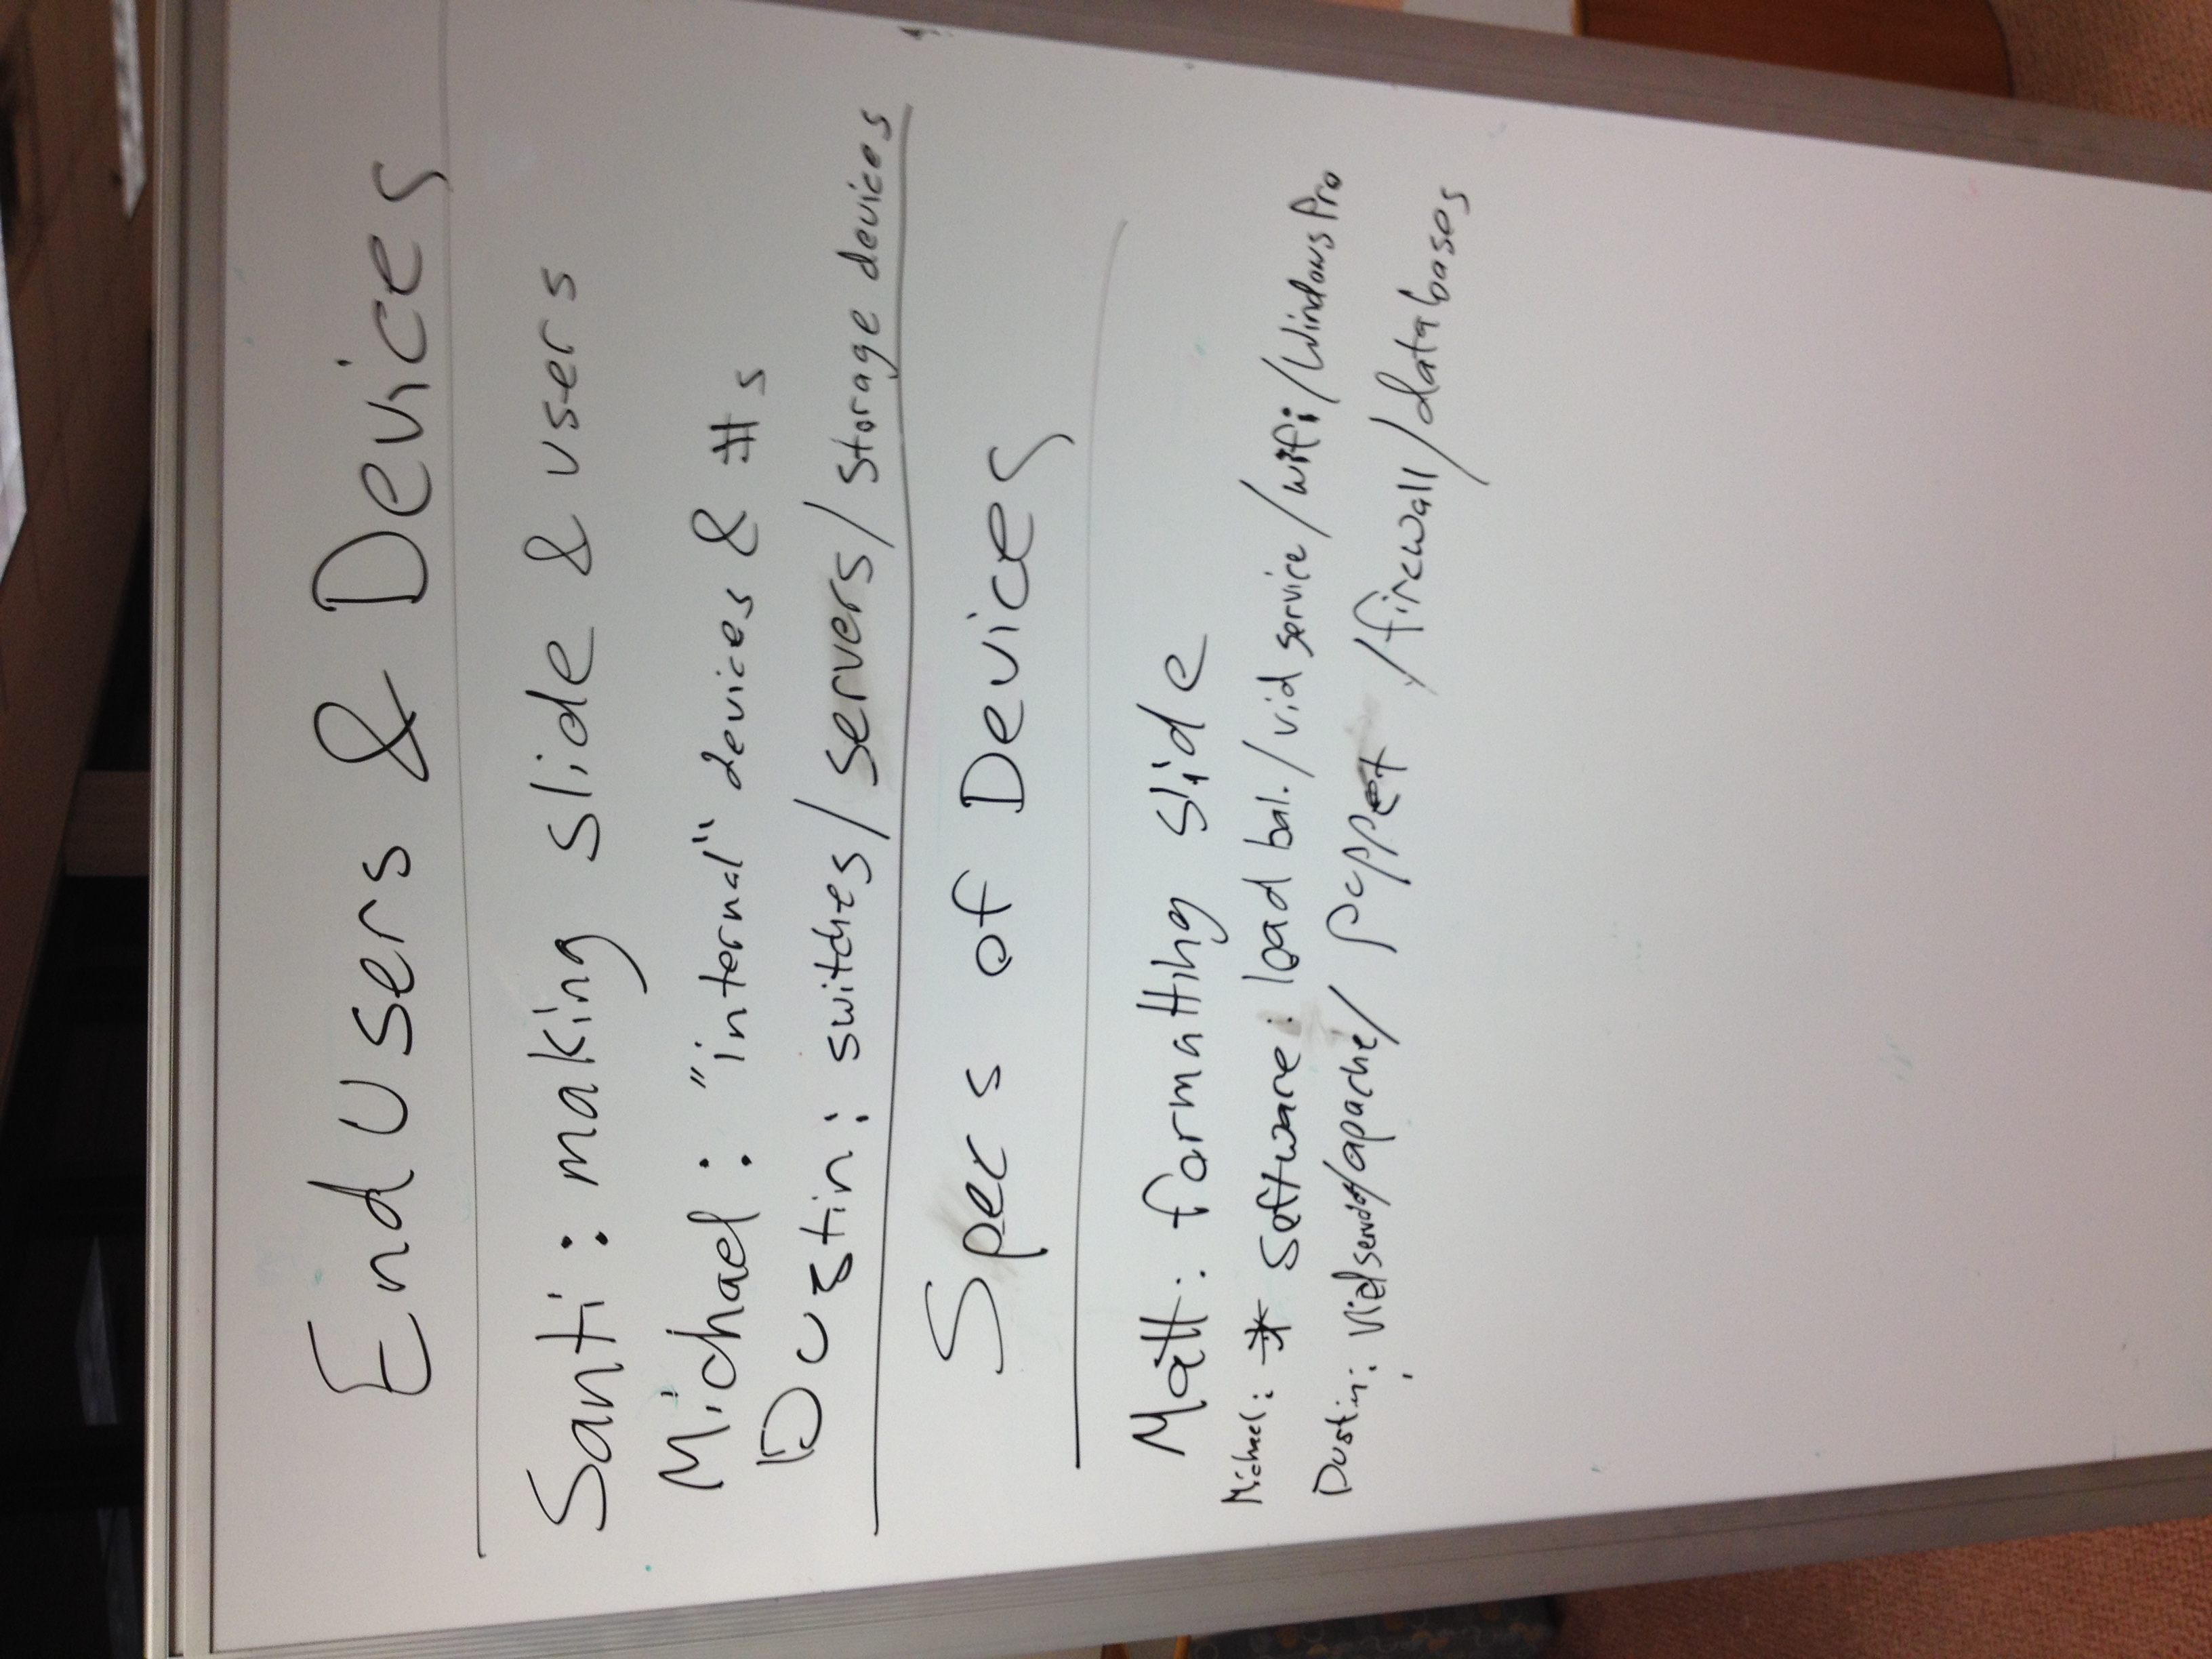 End Users & Devices
Santi: making slide & users
Michael: "internal" devices & #s
Dustin: switches/servers/storage devices
Specs of Devices
Matt: formatting slide
Michael: * Software: load bal./vid service/wifi/Windows Pro
Dustin: /apache/puppet/firewall/databases